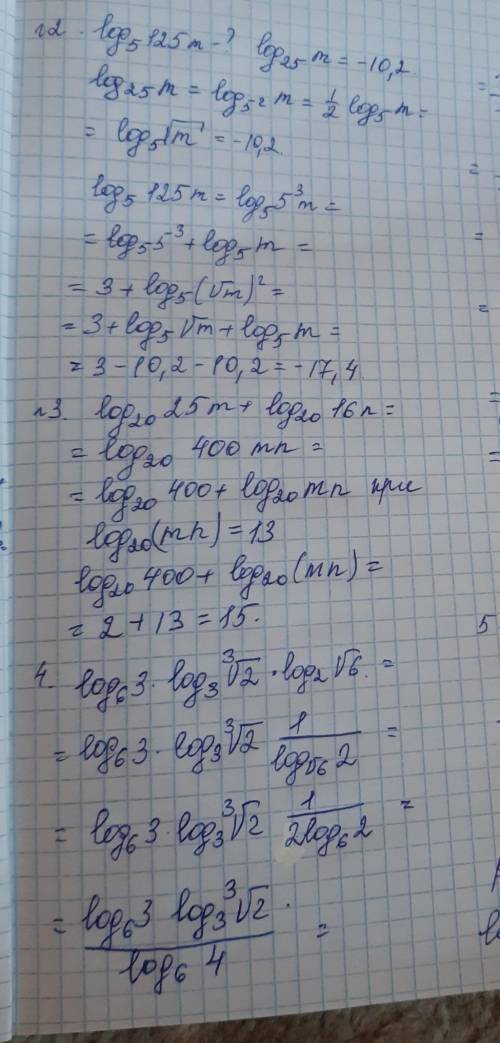 №2. log₅ 125m - ? log₂₅ m = -10,2.
log₂₅ m = log₅² m = 1/2 log₅ m =
= log₅ √m = -10,2.
log₅ 125m = log₅ 5³m =
= log₅ 5³ + log₅ m =
= 3 + log₅ (√m)² =
= 3 + log₅ √m + log₅ m =
= 3 - 10,2 - 10,2 = -17,4.
№3. log₂₀ 25m + log₂₀ 16n =
= log₂₀ 400 mn =
= log₂₀ 400 + log₂₀ mn при
log₂₀(mn) = 13
log₂₀ 400 + log₂₀ (mn) =
= 2 + 13 = 15.
4. log₆ 3 · log₃ ³√2 · log₂ √6. =
= log₆ 3 · log₃ ³√2 1/log√₆ 2 =
= log₆ 3 · log₃ ³√2 1/2log₆ 2 =
= log₆ 3 log₃ ³√2 · / log₆ 4 =
5